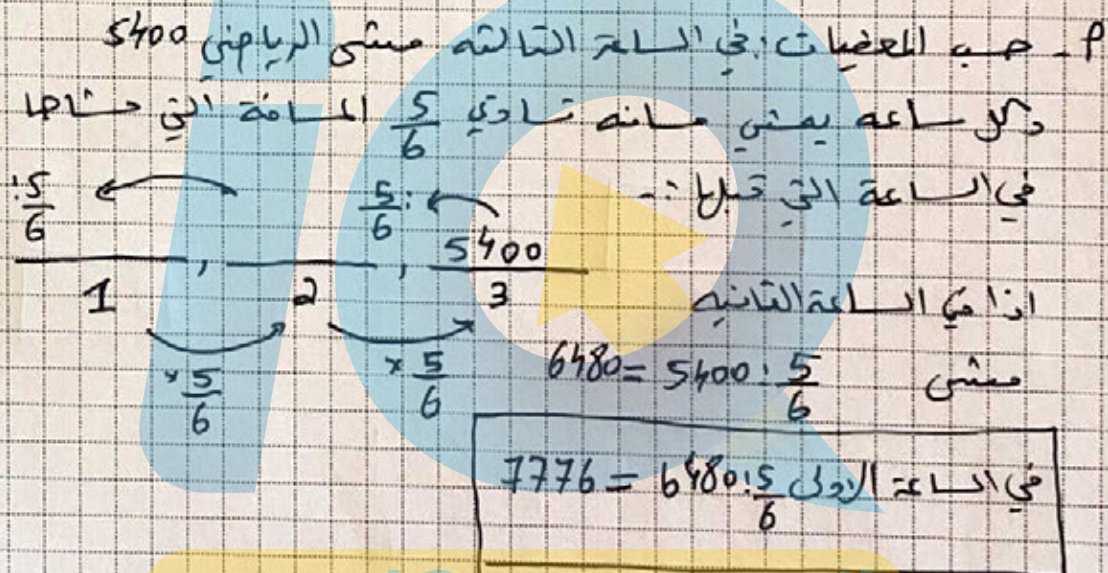 أ- حسب المعطيات: في الساعة الثالثة مشى الرياضي 5400
وكل ساعة يمشي مسافة تساوي 5/6 المسافة التي مشاها
في الساعة التي قبلها :-
:5/6 5/6:
___ , ___ , 5400
1 2 3
×5/6 ×5/6
اذا في الساعة الثانية
مشى 5400:5/6 = 6480
في الساعة الاولى 6480:5/6 = 7776